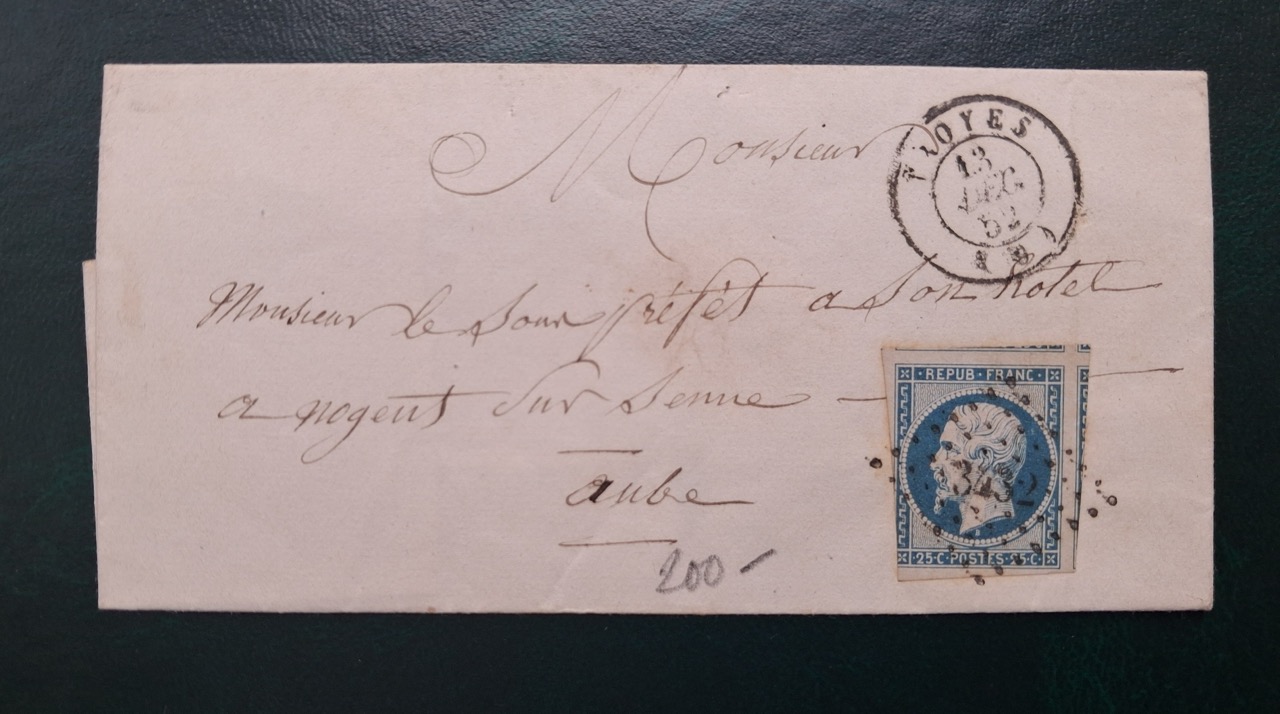 Monsieur
TROYES
13
DEC
52
Monsieur le Sour préfét a Son hotel
a nogent Sur Senne
aube
200-
REPUB·FRANC·
25·C·POSTES·25·C·